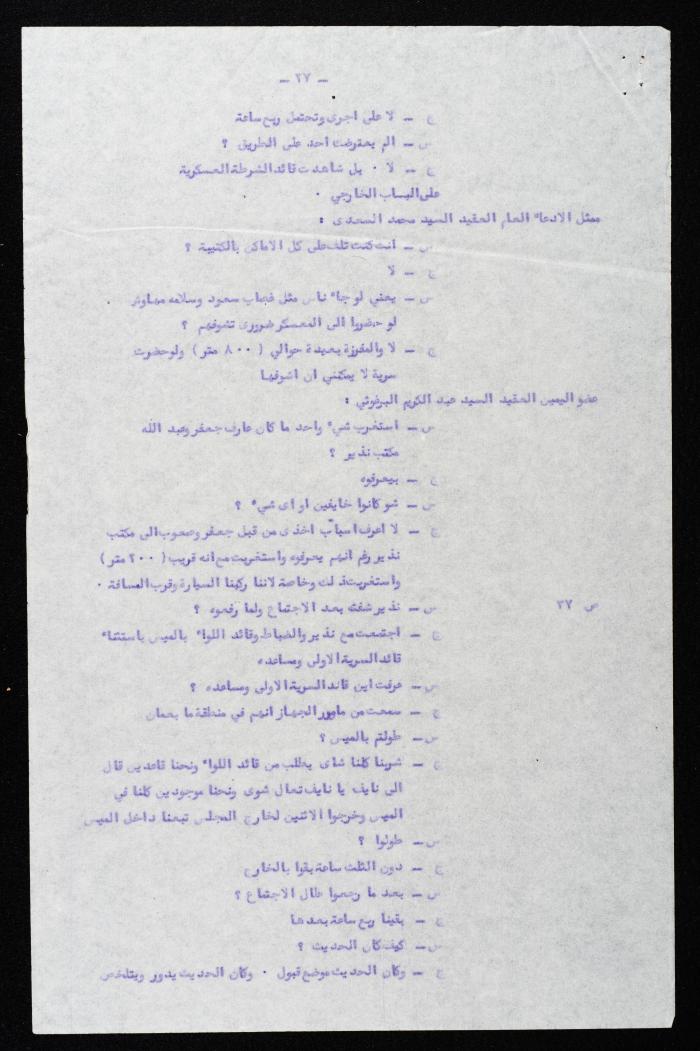 - ٢٧ -
ج - لا على اجرى وتحتمل ربع ساعة
س - الم يعترضك احد على الطريق ؟
ج - لا ٠ بل شاهدت قائد الشرطة العسكرية
على الباب الخارجي ٠
ممثل الادعاء العام العقيد السيد محمد السعدى :
س - انت كنت تلف على كل الاماكن بالكتيبة ؟
ج - لا
س - يعني لو جاء ناس مثل عقاب سعود وسلامه
لو حضروا الى المعسكر ضرورى تشوفهم ؟
ج - لا والمفرزة بعيدة حوالي ( ٨٠٠ متر ) ولو حضرت
سرية لا يمكنني ان اشوفها
عضو اليمين العقيد السيد عبد الكريم البرغوثي :
س - استغرب شيء واحد ما كان عارف جعفر وعبد الله
مكتب نذير ؟
ج - بيعرفوه
س - شو كانوا خايفين او اى شيء ؟
ج - لا اعرف اسباب اخذى من قبل جعفر وصعوب الى مكتب
نذير رغم انهم يعرفوه واستغربت مع انه قريب ( ٢٠٠ متر )
واستغربت ذلك وخاصة لاننا ركبنا السيارة وقرب المسافة ٠
س - نذير شفته بعد الاجتماع ولما رفعوه ؟
ص ٣٧
ج - اجتمعت مع نذير والضباط وقائد اللواء بالميس باستثناء
قائد السرية الاولى ومساعده
س - عرفت اين قائد السرية الاولى ومساعده ؟
ج - سمعت من مامور الجهاز انهم في منطقة ما بعمان
س - طولتم بالميس ؟
ج - شربنا كلنا شاى بطلب من قائد اللواء ونحنا قاعدين قال
الى نايف يا نايف تعال شوى ونحنا موجودين كلنا في
الميس وخرجوا الاثنين لخارج المجلس تبعنا داخل الميس
س - طولوا ؟
ج - دون الثلث ساعة بقوا بالخارج
س - بعد ما رجعوا طال الاجتماع ؟
ج - بقينا ربع ساعة بعدها
س - كيف كان الحديث ؟
ج - وكان الحديث موضع قبول ٠ وكان الحديث يدور ويتلخص